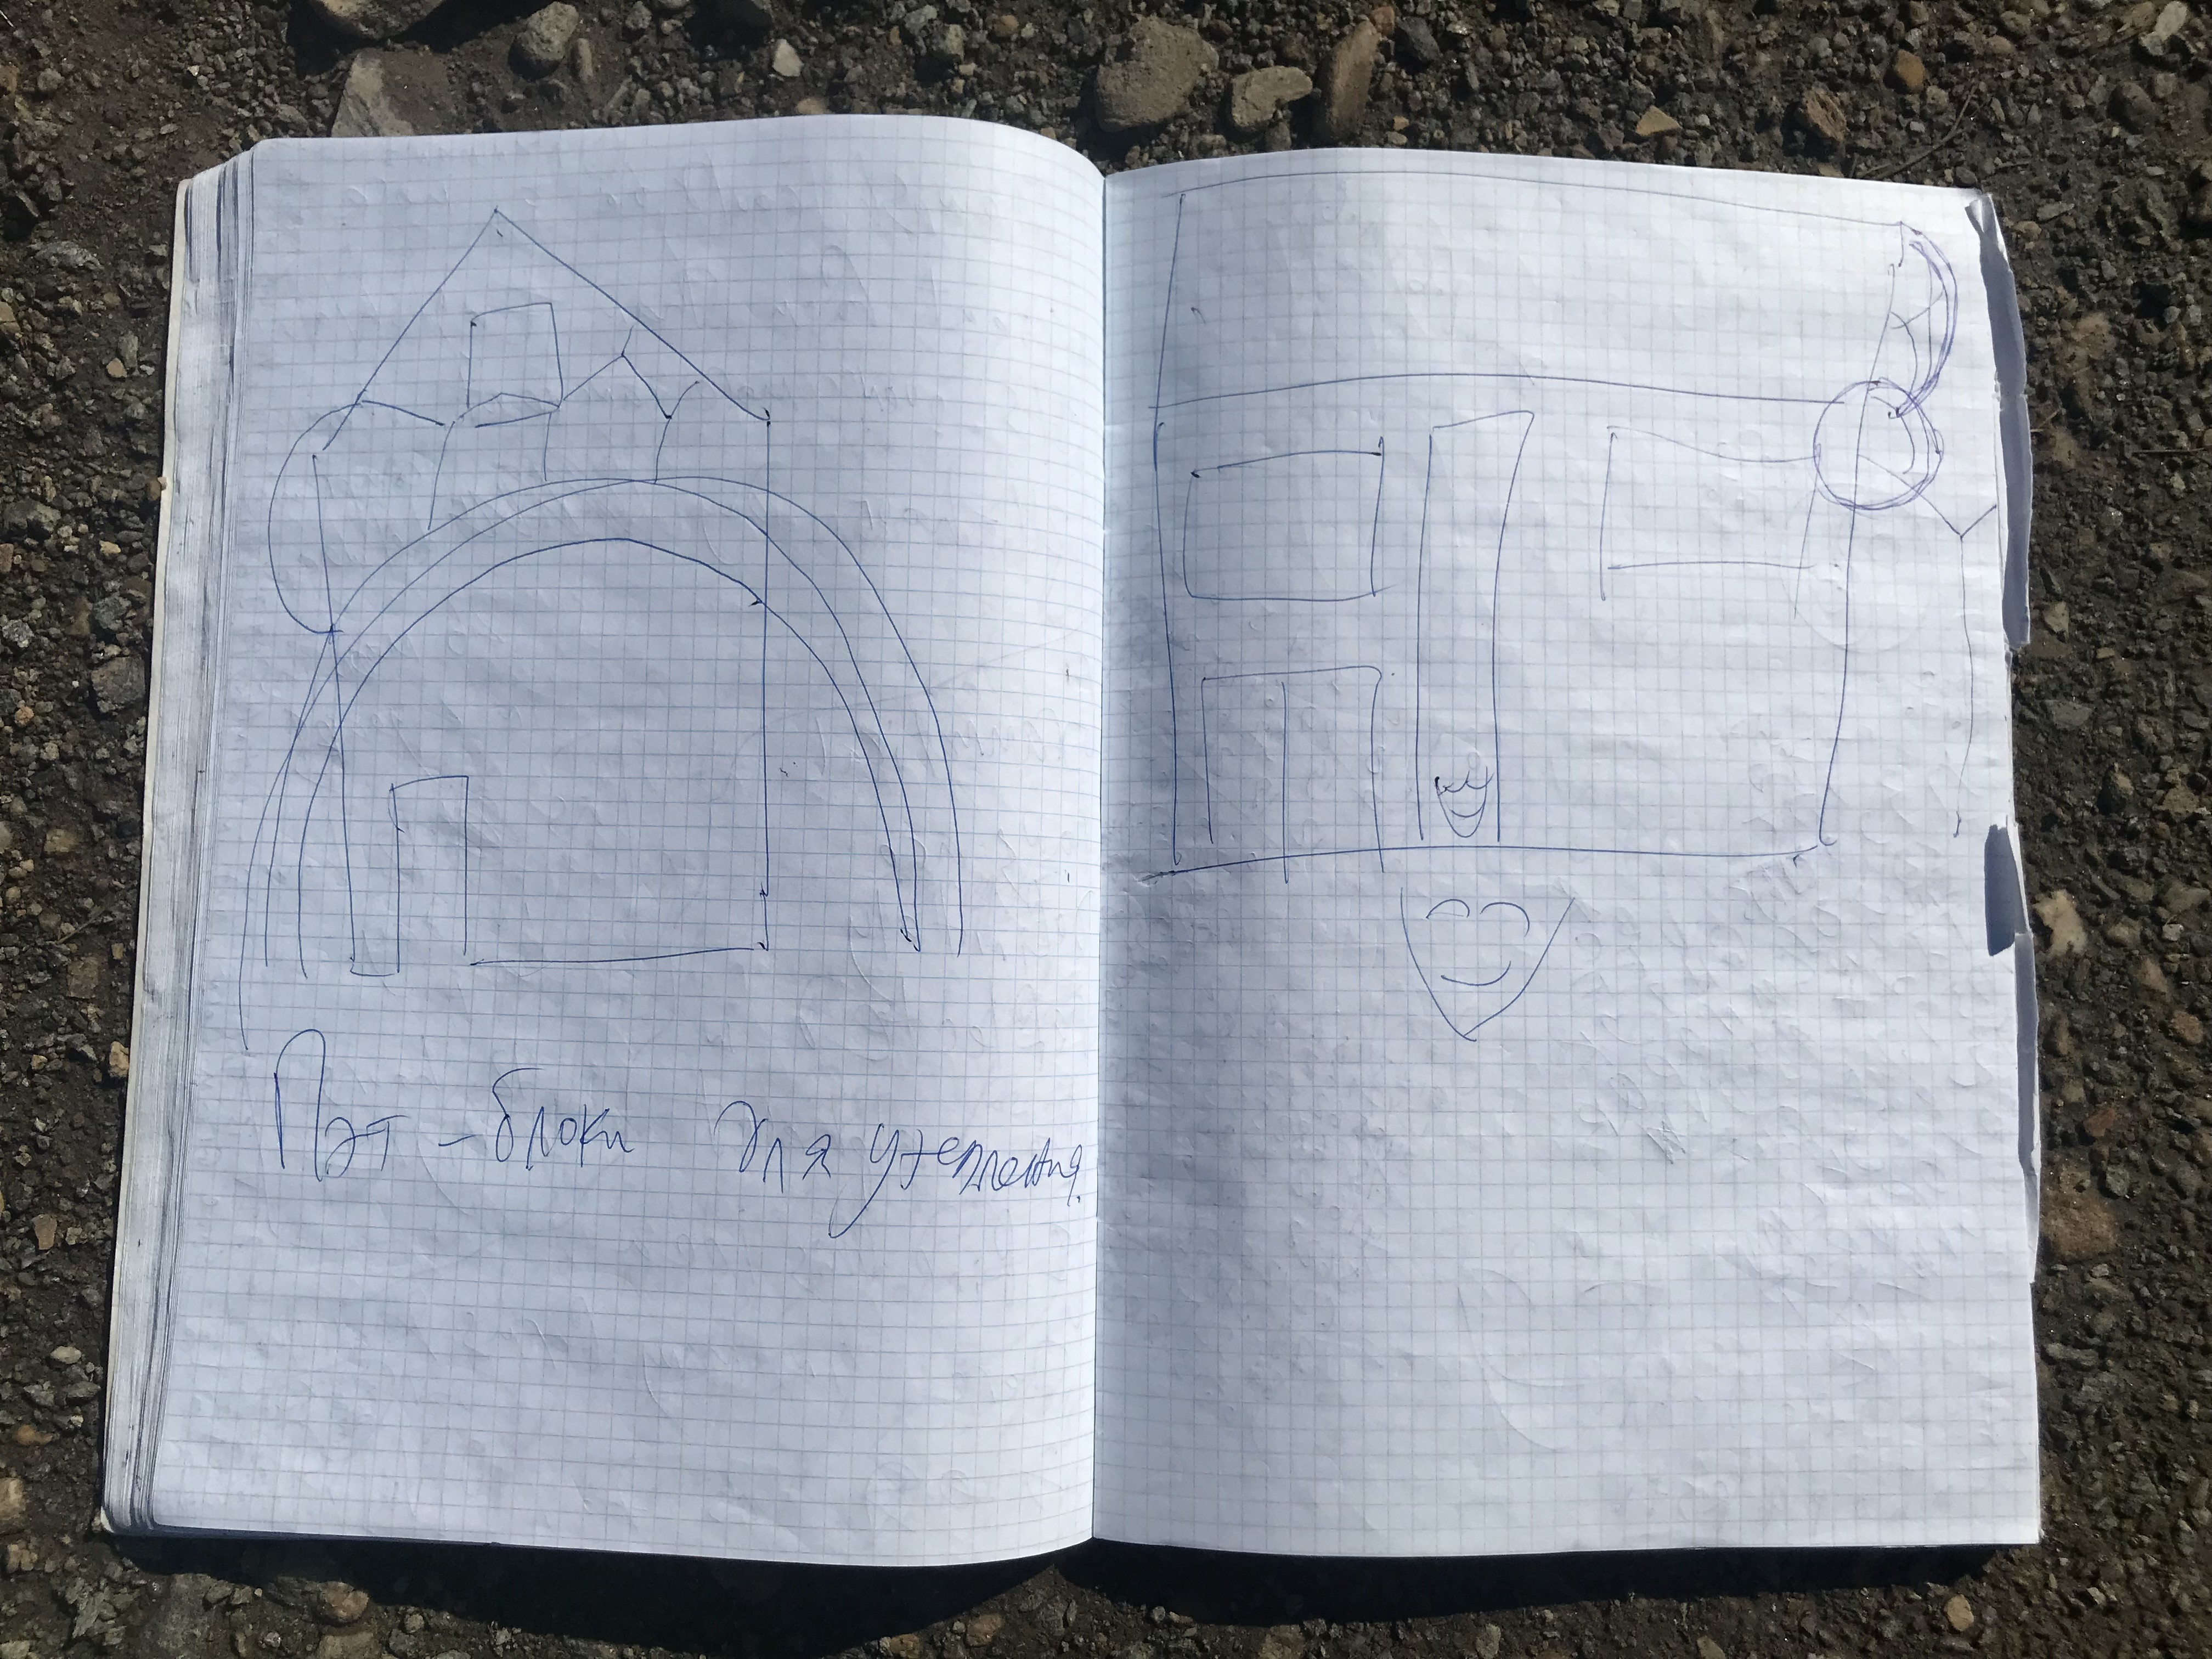 Пэт - блоки для утепления